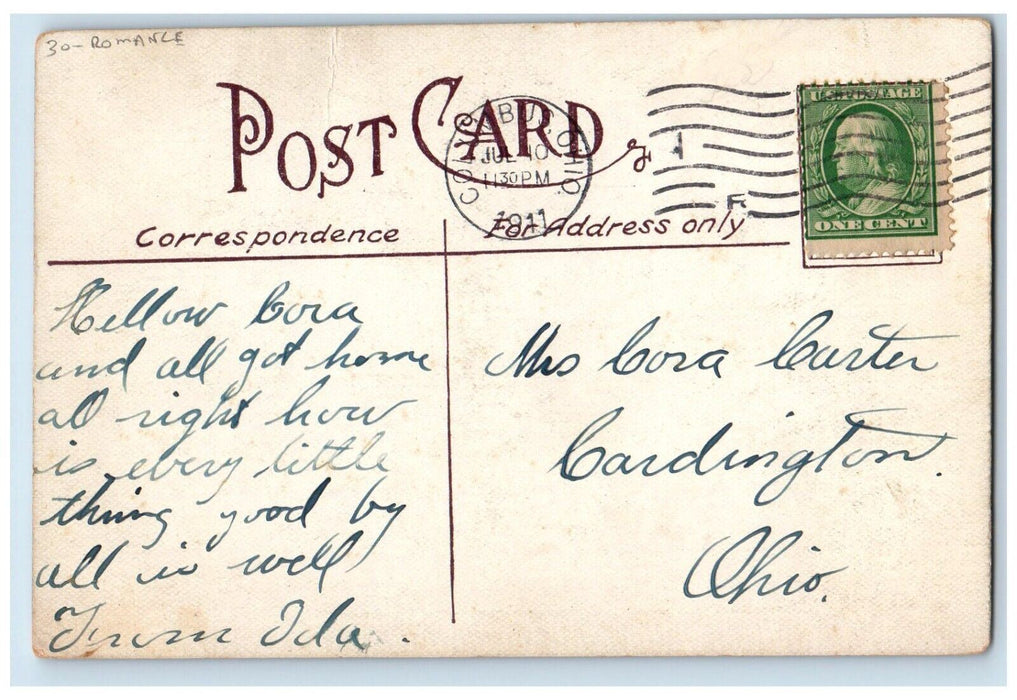 30-ROMANCE
POST CARD
COLUMBUS, OHIO.
JUL 10
1130 PM
1911
U.S. POSTAGE
ONE CENT
Correspondence
For Address only
Hellow Cora
and all got home
all right how
is every little
thing good by
all is well
From Ida.
Mrs Cora Carter
Cardington.
Ohio.